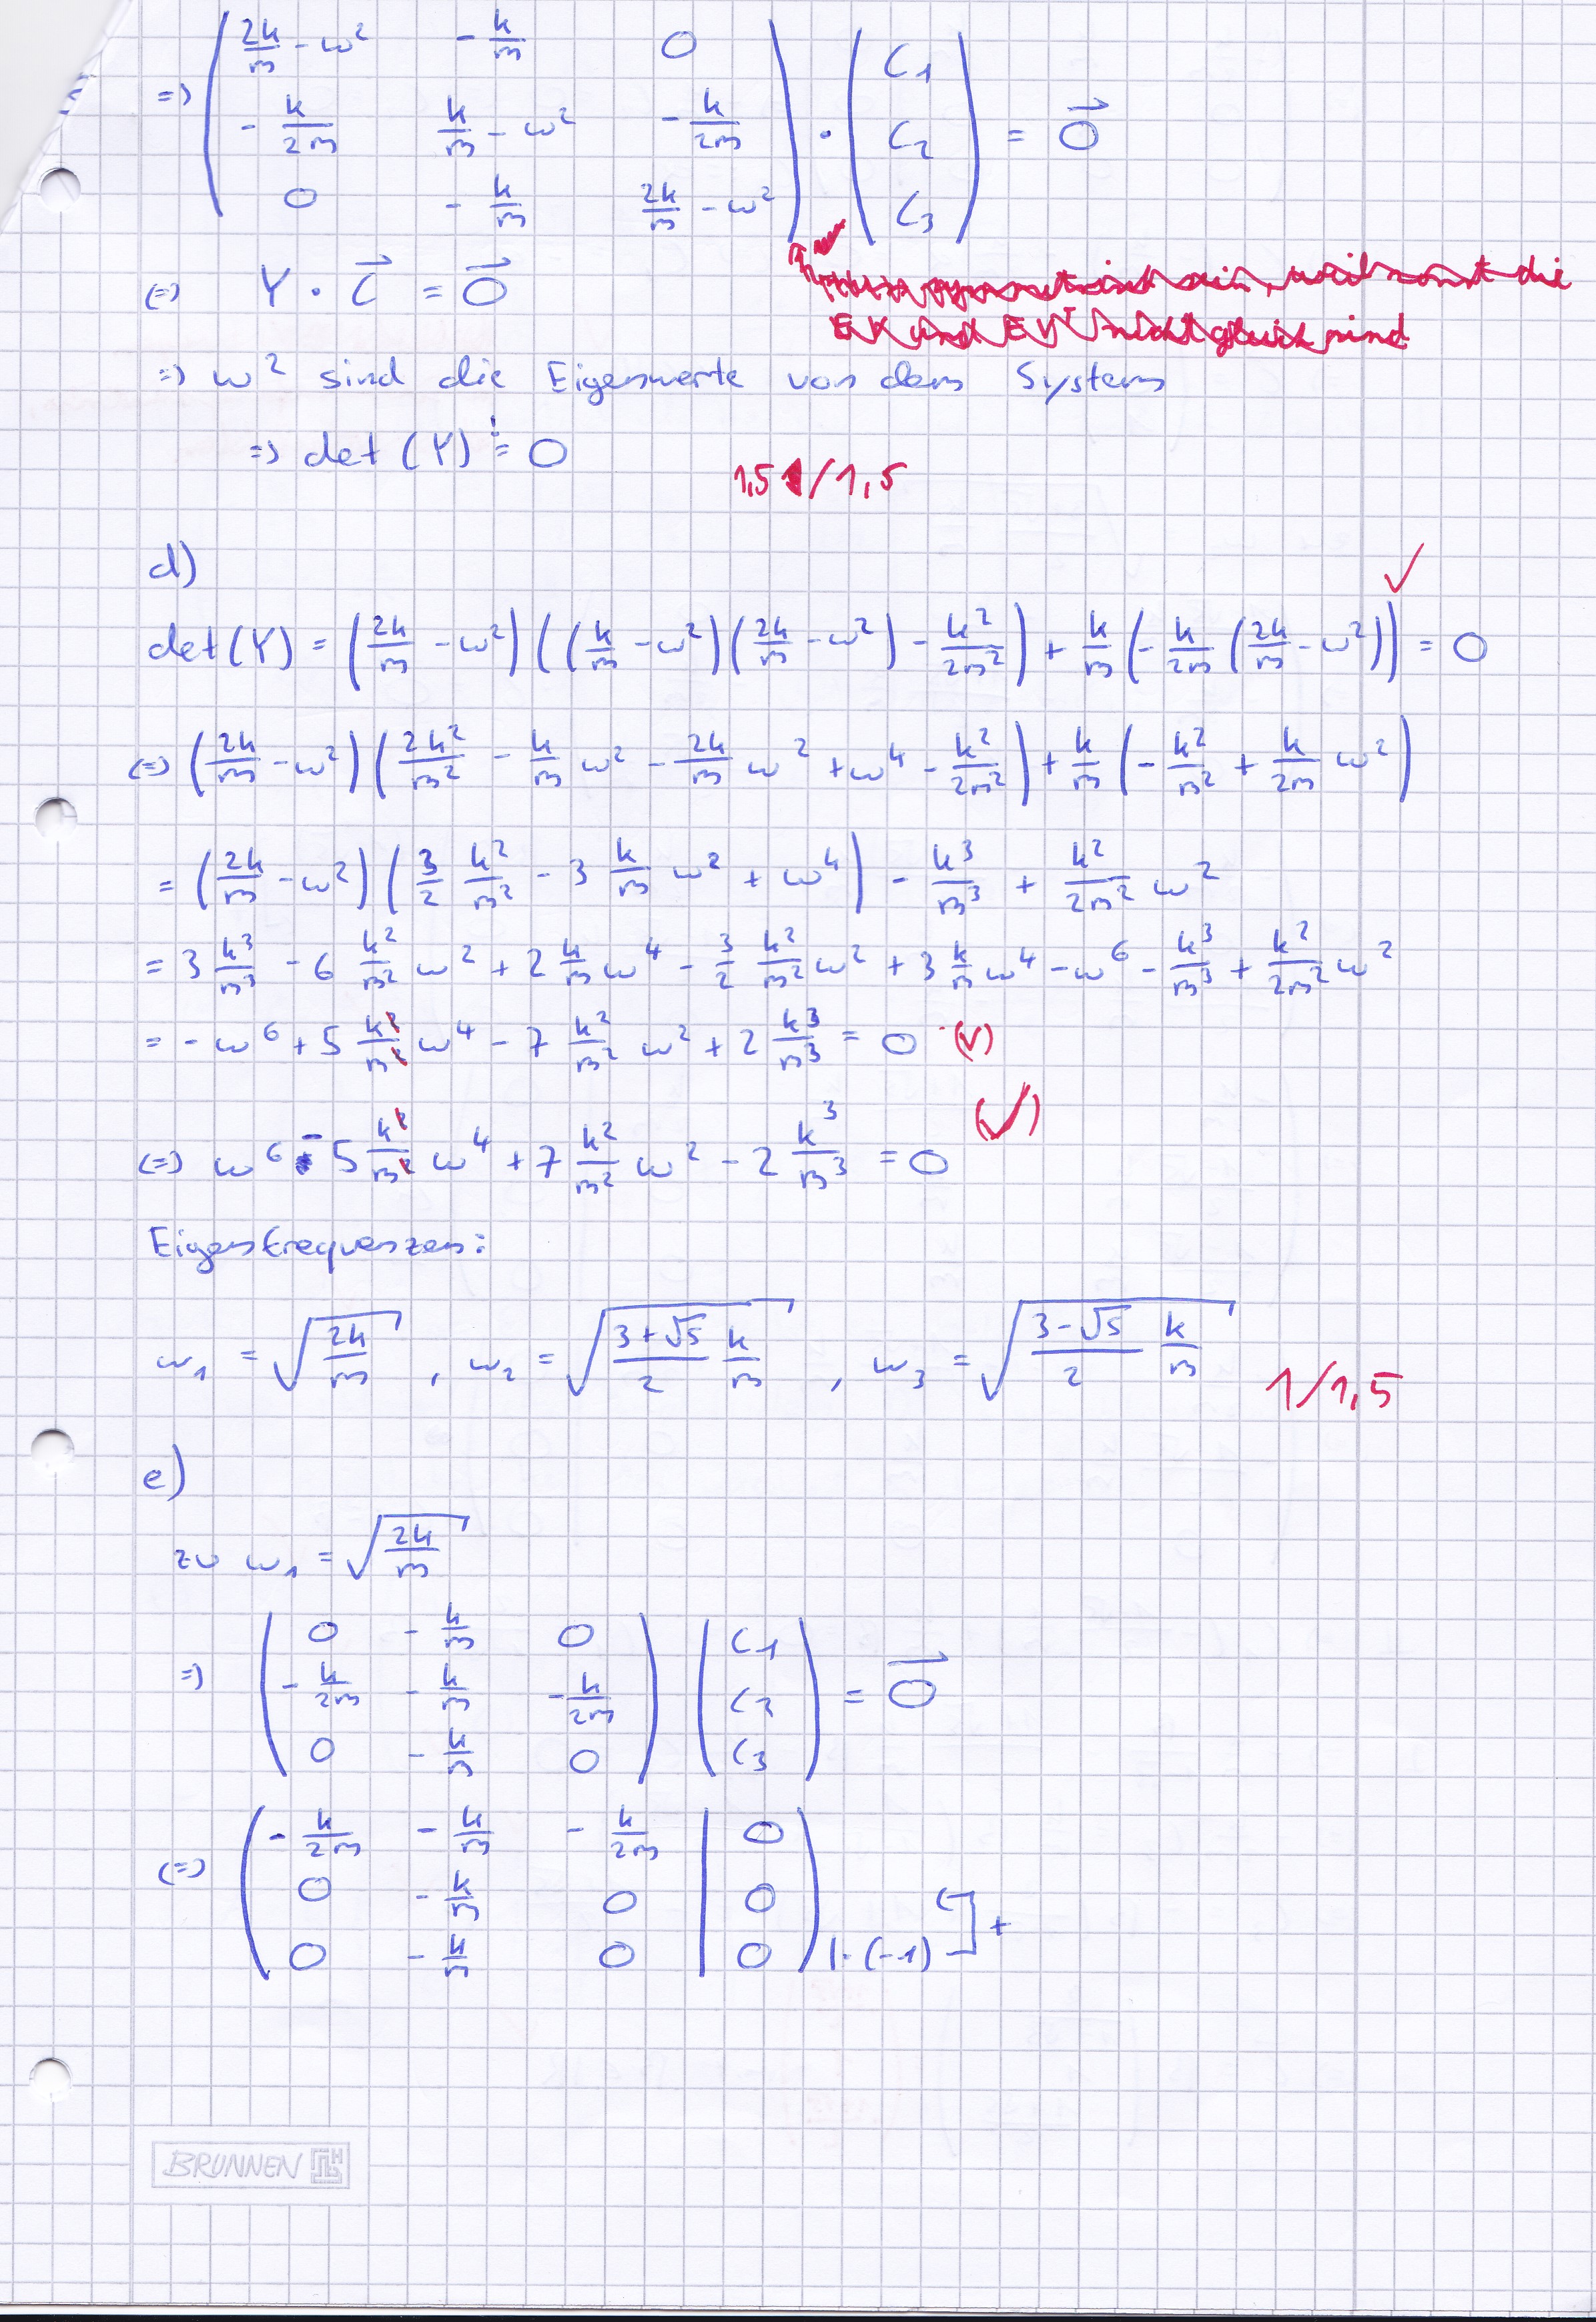 => ( 2k/m - ω²   - k/m   0 )   ( C₁ )
( - k/2m   k/m - ω²   - k/2m ) · ( C₂ ) = 0⃗
( 0   - k/m   2k/m - ω² )   ( C₃ )
(=) Y · C⃗ = 0⃗
=> ω² sind die Eigenwerte von dem System
=> det (Y) != 0
1,5 /1,5
d)
det(Y) = (2k/m - ω²) ((k/m - ω²)(2k/m - ω²) - k²/2m²) + k/m (- k/2m (2k/m - ω²)) = 0 ✓
(=>) (2k/m - ω²) (2k²/m² - k/m ω² - 2k/m ω² + ω⁴ - k²/2m²) + k/m (- k²/m² + k/2m ω²)
= (2k/m - ω²) (3/2 k²/m² - 3 k/m ω² + ω⁴) - k³/m³ + k²/2m² ω²
= 3 k³/m³ - 6 k²/m² ω² + 2 k/m ω⁴ - 3/2 k²/m² ω² + 3 k/m ω⁴ - ω⁶ - k³/m³ + k²/2m² ω²
= - ω⁶ + 5 k²/m² ω⁴ - 7 k²/m² ω² + 2 k³/m³ = 0 (✓)
(=>) ω⁶ - 5 k²/m² ω⁴ + 7 k²/m² ω² - 2 k³/m³ = 0 (✓)
Eigenfrequenzen:
ω₁ = √(2k/m) , ω₂ = √((3+√5)/2 k/m) , ω₃ = √((3-√5)/2 k/m) 1/1,5
e)
zu ω₁ = √(2k/m)
=> ( 0   - k/m   0 ) ( C₁ )
( - k/2m   - k/m   - k/2m ) ( C₂ ) = 0⃗
( 0   - k/m   0 ) ( C₃ )
(=>) ( - k/2m   - k/m   - k/2m | 0 )
( 0   - k/m   0 | 0 )
( 0   - k/m   0 | 0 ) |· (-1) +
BRUNNEN